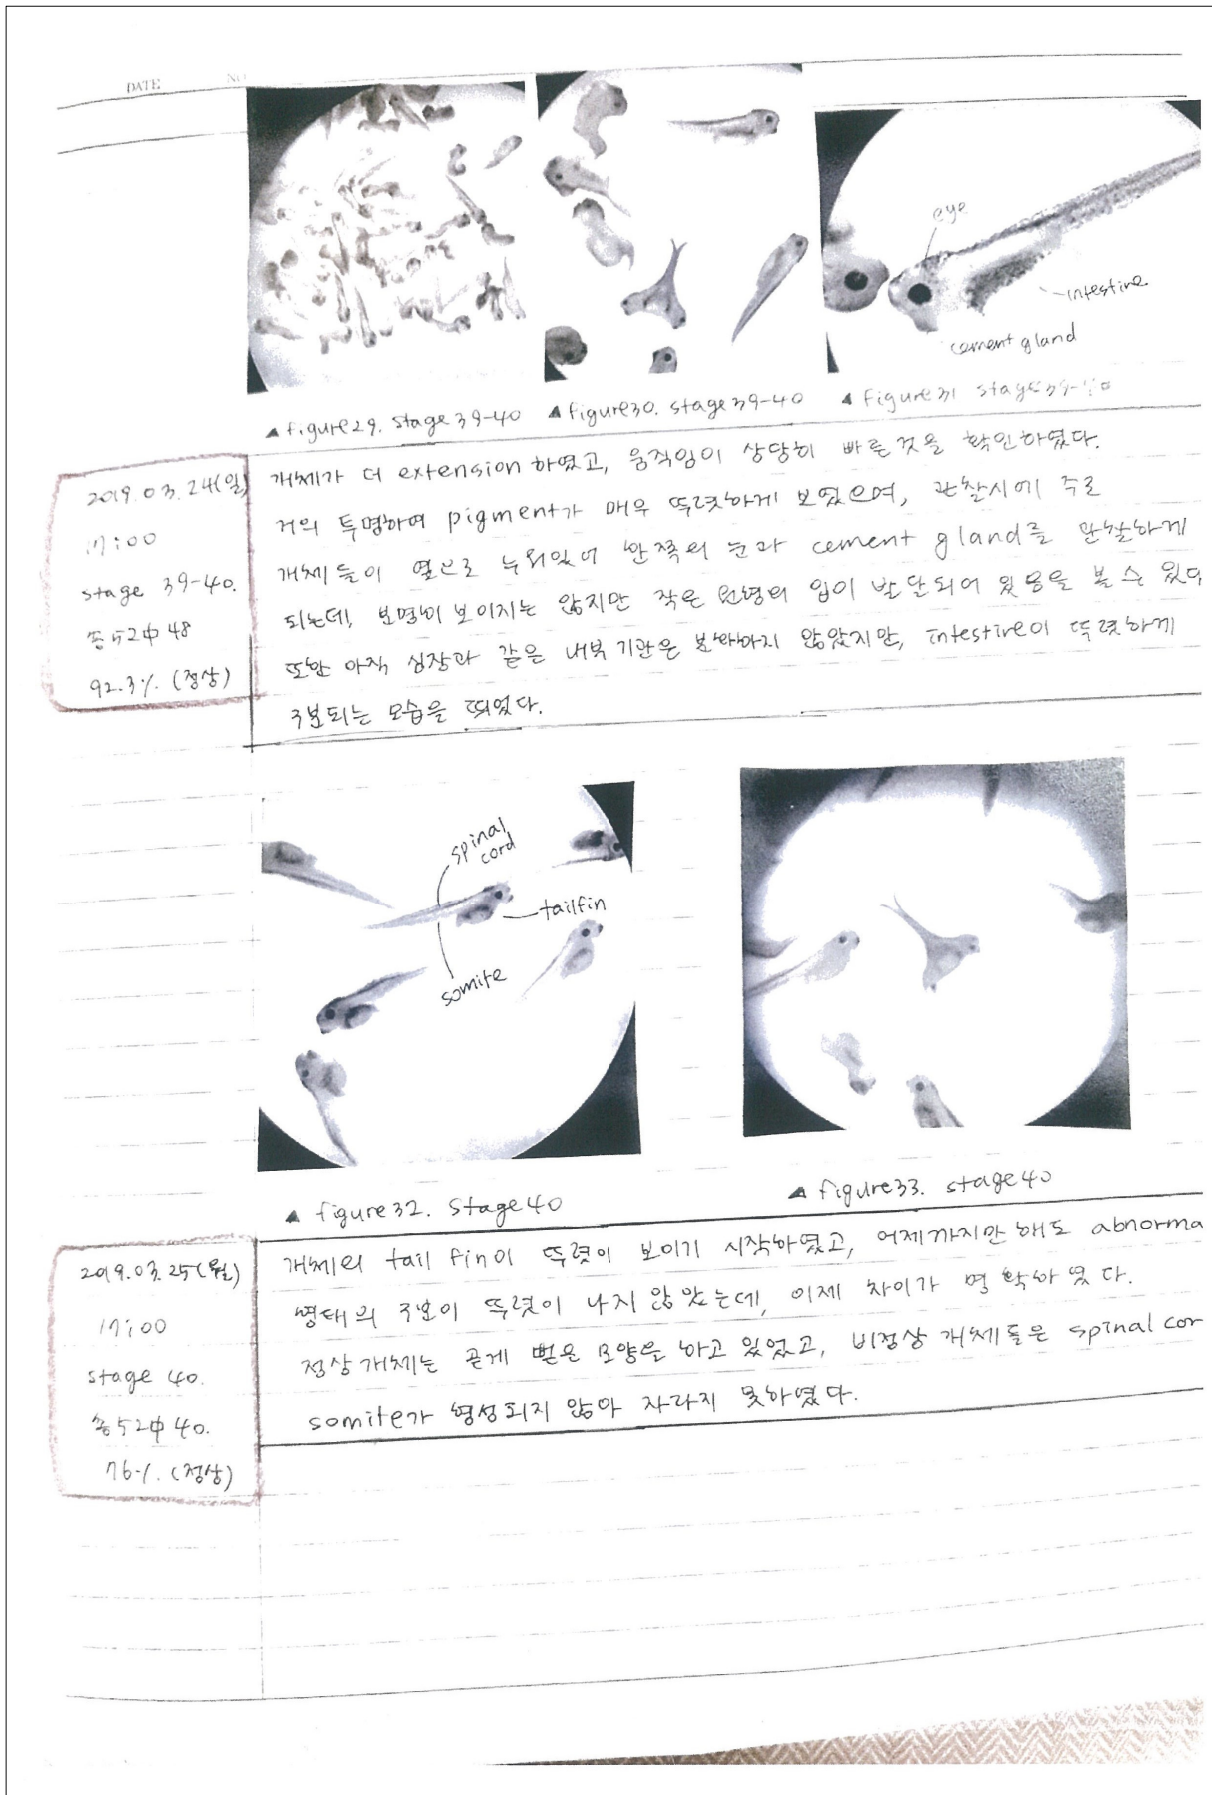 DATE NO
eye
intestine
cement gland
▲ figure29. stage 39-40 ▲ figure30. stage 39-40 ▲ figure31 stage39-40
2019. 03. 24(일)
17:00
stage 39-40.
총 52中 48
92.3%. (정상)
개체가 더 extension 하였고, 움직임이 상당히 빠른 것을 확인하였다.
거의 투명하여 pigment가 매우 뚜렷하게 보였으며, 관찰시에 주로
개체들이 옆으로 누워있어 한쪽의 눈과 cement gland를 관찰하게
되는데, 분명히 보이지는 않지만 작은 원형의 입이 발달되어 있음을 볼 수 있다
또한 아직 심장과 같은 내부 기관은 분화하지 않았지만, intestine이 뚜렷하게
구분되는 모습을 띄었다.
spinal
cord
tailfin
somite
▲ figure32. Stage40
▲ figure33. stage40
2019. 03. 25(월)
17:00
stage 40.
총 52中 40.
76%. (정상)
개체의 tail fin이 뚜렷이 보이기 시작하였고, 어제까지만 해도 abnorma
형태의 구분이 뚜렷이 나지 않았는데, 이제 차이가 명확하였다.
정상 개체는 곧게 뻗은 모양을 하고 있었고, 비정상 개체들은 spinal cor
somite가 형성되지 않아 자라지 못하였다.